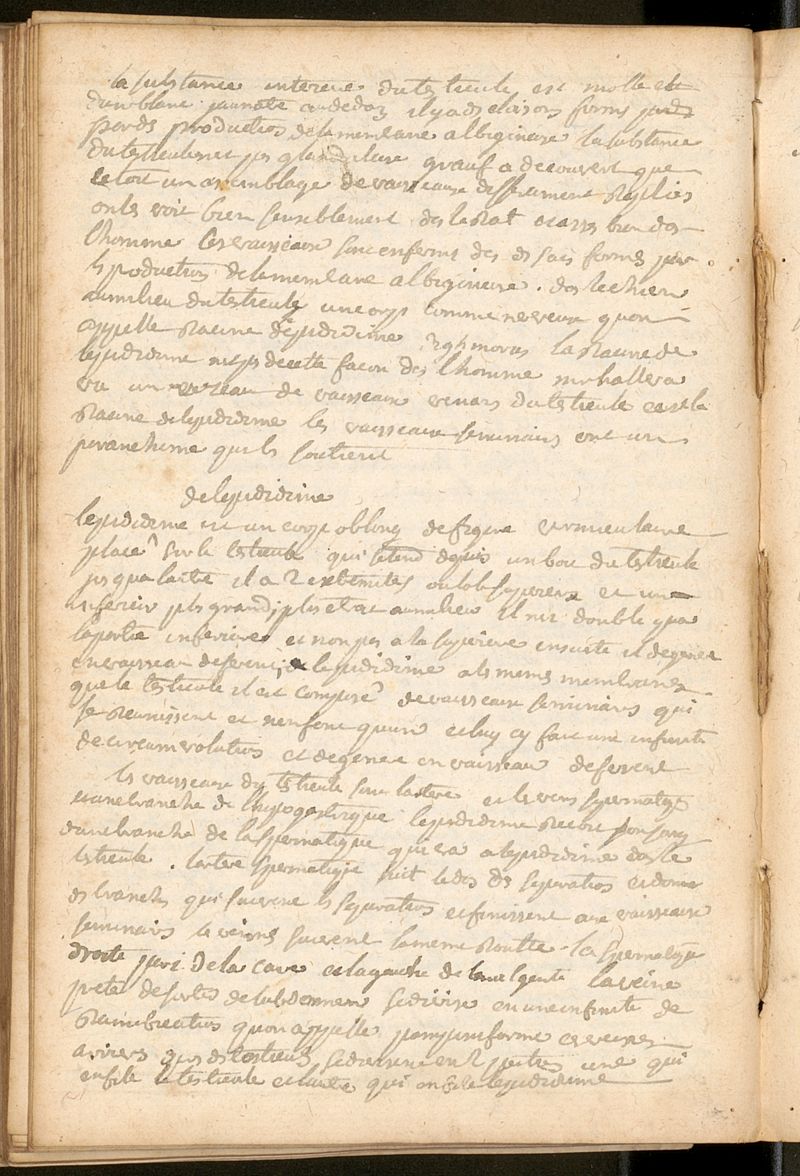 la substance interieure du testicule est molle et
d'un blanc jaunatre au dedans il y a des cloisons formes
par des productions de la membrane albiginuse la substance
du testicule nest pas glanduleuse graaf a decouvert que
cetoit un assemblage de vaisseaux differament replies
on les voit bien sensiblement des le rat et asses bien des
l'homme les vaisseaux sont enfermes des des sacs formes par
les productions de la membrane albiginuse . des le chien
au milieu du testicule un corps comme nerveux quon
appelle racine depididime highmorus la racine de
lepididime nest pas de cette facon des l'homme mr haller a
vu un reseau de vaisseaux venans du testicule cest la
racine de lepididime les vaisseaux seminaires ont un
paranchime qui les soutient
de lepididime
lepididime est un corps oblong de figure vermiculaire
placé sur le testicule qui setend depuis un bout du testicule
jusqua lautre il a 2 extremites ou lob superieur et un
inferieur plus grand, plus etroit au milieu il nest double qua
la partie inferieure et non pas a la superieure ensuite il degenere
en vaisseau deferent, lepididime a les memes membranes
que le testicule il est composé de vaisseaux seminaires qui
se reunissent et nen font quun et luy cy fait une infinité
de circumvolutions et degenere en vaisseau deferent
les vaisseaux du testicule sont lartere et la veine spermatique
et une branche de l'hypogastrique lepididime recoit son sang
dune branche de la spermatique qui va a lepididime des le
testicule . lartere spermatique suit le dos des separations et donne
des branches qui suivent les separations et finissent aux vaisseaux
seminaires les veines suivent la meme routte . la spermatique
droite part de la cave et la gauche de lemulgente la veine
prete de sortir de labdomen se divise en une infinité de
ramifications quon appelle pampiniforme ces veines
arrivees pres du testicule se divisent en 2 parties une qui
enfile le testicule et lautre qui enfile lepididime